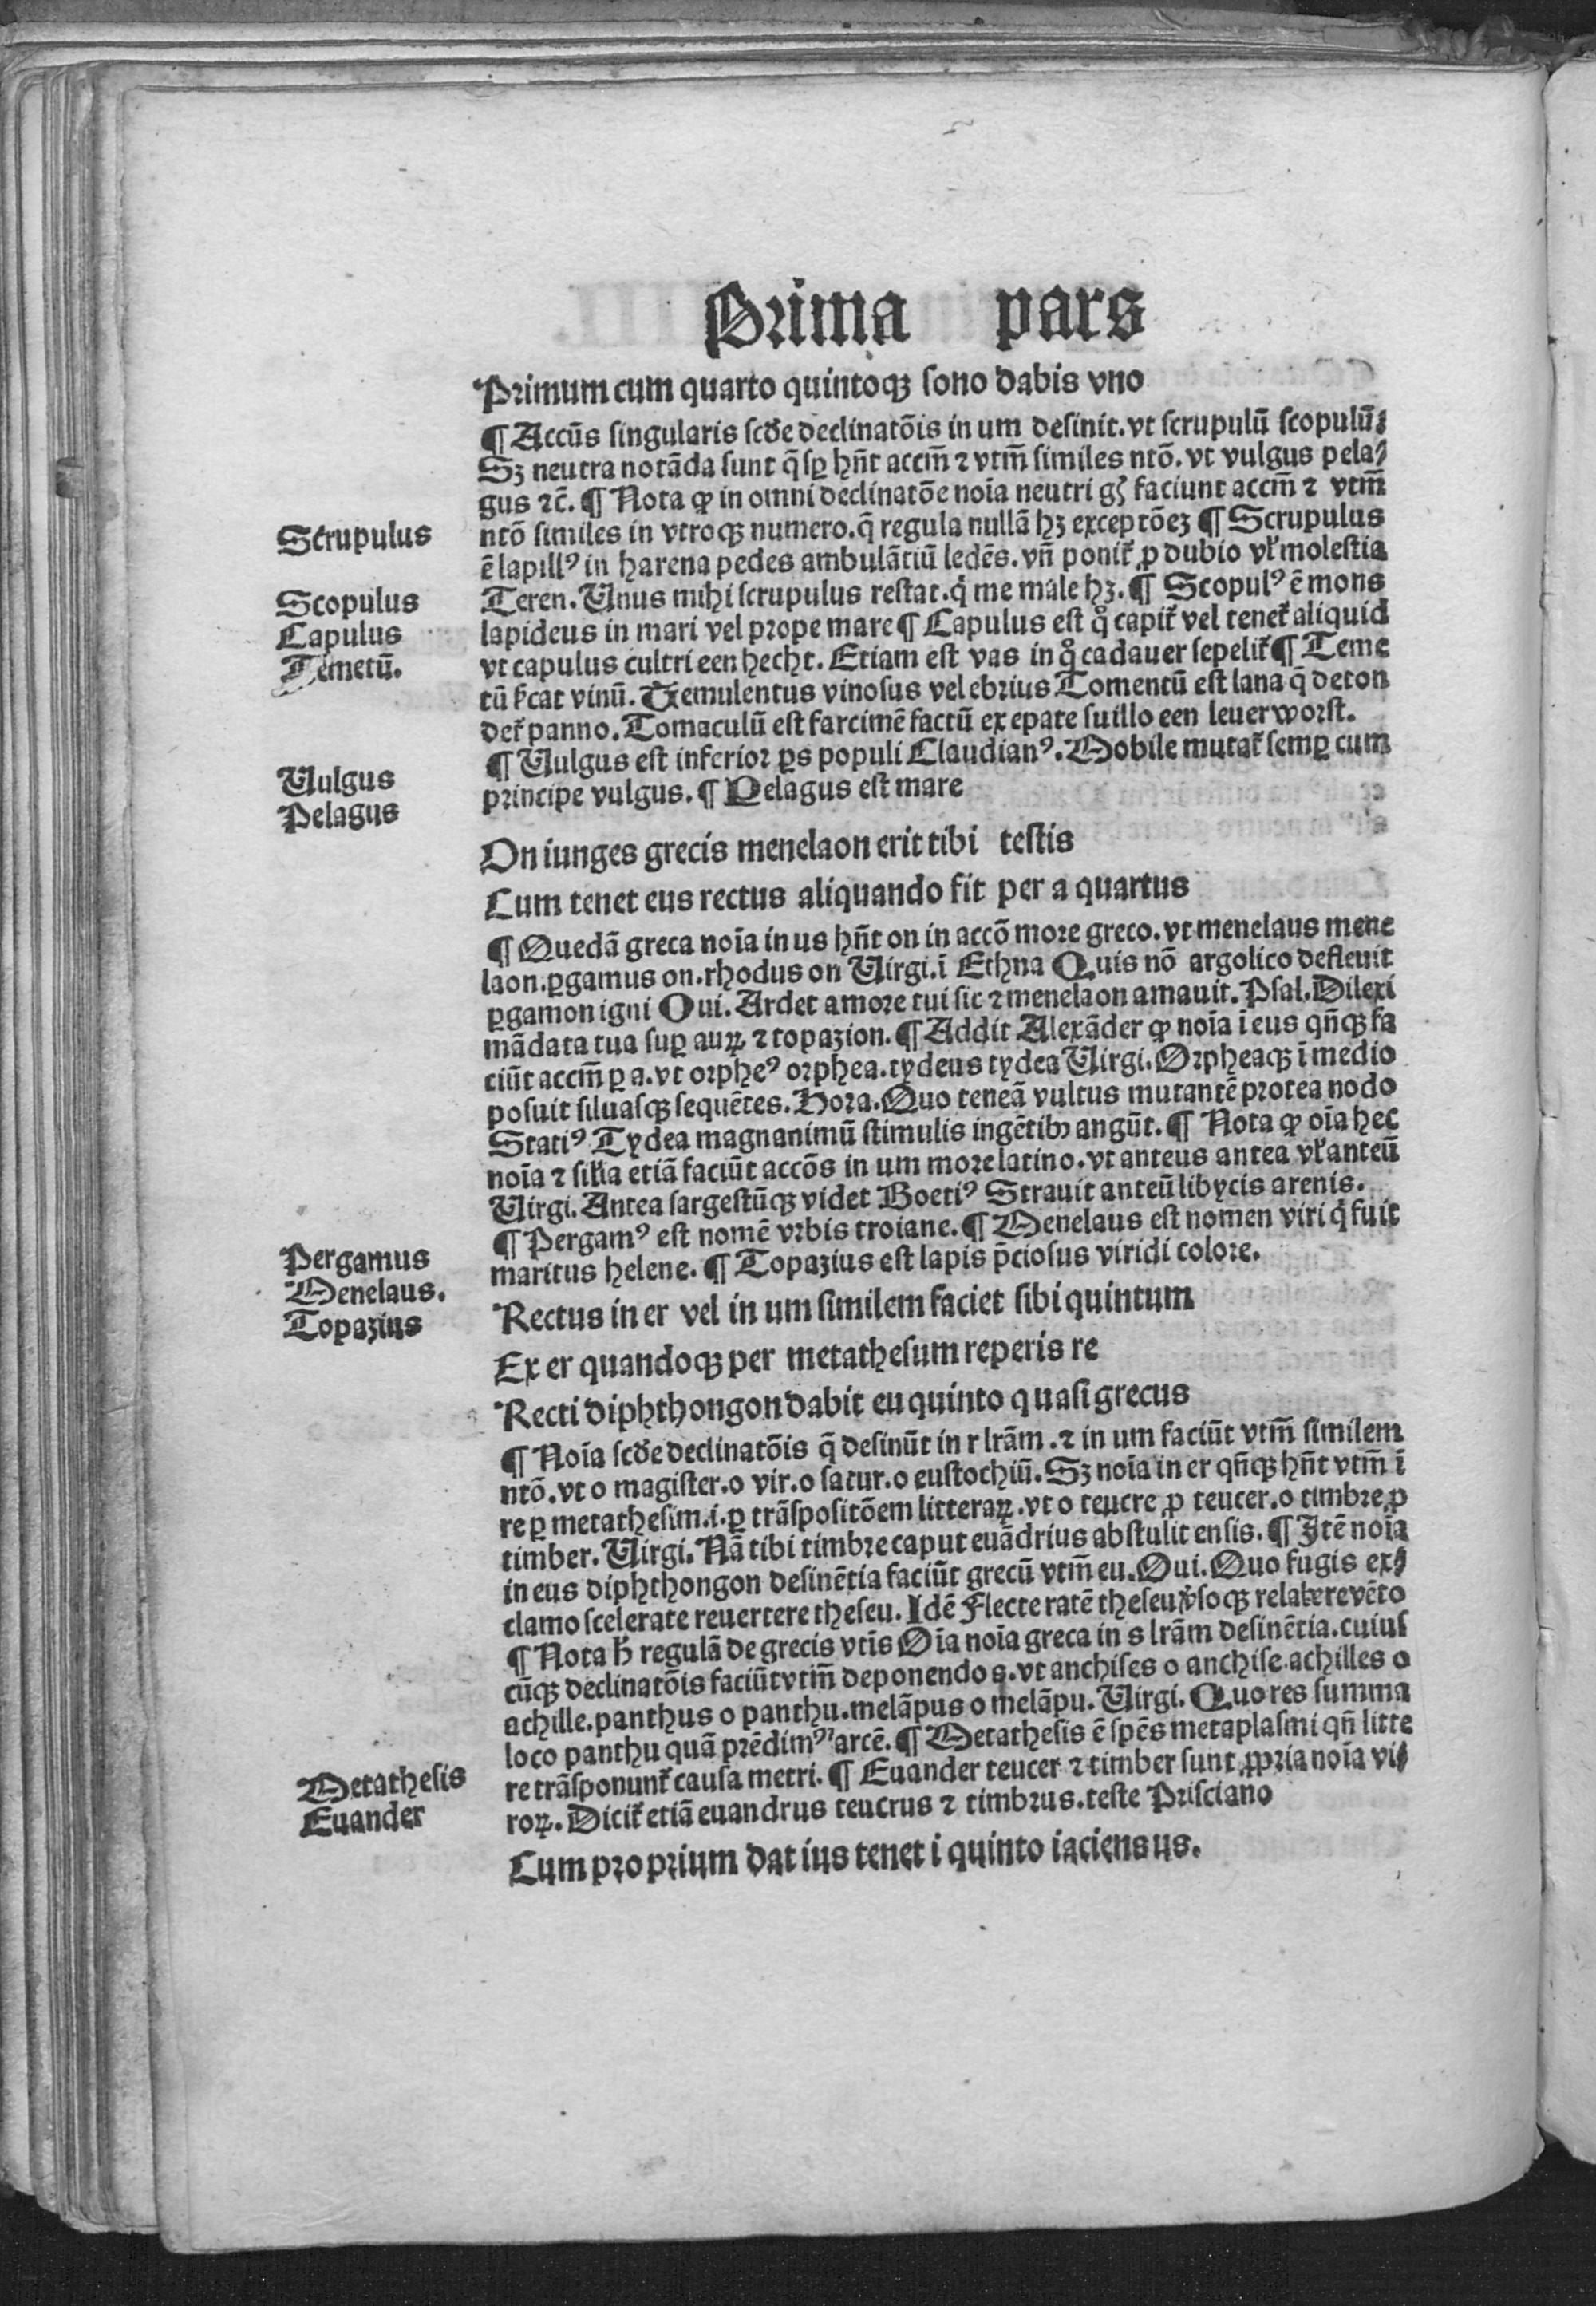 Prima pars
Primum cum quarto quintoqꝫ sono dabis vno
¶ Accūs singularis scd̄e declinatōis in um desinit. vt scrupulū scopulū⸗
Sꝫ neutra notāda sunt q̄ sꝑ hn̄t accm̄ ⁊ vtm̄ similes ntō. vt vulgus pela⸗
gus ⁊c̄. ¶ Nota ꝙ in omni declinatōe noīa neutri gꝭ faciunt accm̄ ⁊ vtm̄
Scrupulus
ntō similes in vtroqꝫ numero. q̄ regula nullā hꝫ exceptōeꝫ ¶ Scrupulus
ē lapillꝰ in harena pedes ambulātiū ledēs. vn̄ ponit᷑ ꝓ dubio vl̓ molestia
Scopulus
Teren. Unus mihi scrupulus restat. q̇ me male hꝫ. ¶ Scopulꝰ ē mons
Capulus
lapideus in mari vel prope mare ¶ Capulus est qͦ capit᷑ vel tenet᷑ aliquid
Temetū.
vt capulus cultri een hecht. Etiam est vas in qͦ cadauer sepelit᷑ ¶ Teme
tū s̓cat vinū. Temulentus vinosus vel ebrius Tomentū est lana q̄ deton
det᷑ panno. Tomaculū est farcimē factū ex epate suillo een leuerworst.
Uulgus
¶ Uulgus est inferior ꝑs populi Claudianꝰ. Mobile mutat᷑ semꝑ cum
Pelagus
principe vulgus. ¶ Pelagus est mare
On iunges grecis menelaon erit tibi testis
Cum tenet eus rectus aliquando fit per a quartus
¶ Quedā greca noīa in us hn̄t on in accō more greco. vt menelaus mene
laon. ꝑgamus on. rhodus on Uirgi. ī Ethna Quis nō argolico defleuit
ꝑgamon igni Oui. Ardet amore tui sic ⁊ menelaon amauit. Psal. Dilexi
mādata tua suꝑ auꝝ ⁊ topazion. ¶ Addit Alexāder ꝙ noīa ī eus qn̄qꝫ fa
ciūt accm̄ ꝑ a. vt orpheꝰ orphea. tydeus tydea Uirgi. Orpheaqꝫ ī medio
posuit siluasqꝫ sequētes. Hora. Quo teneā vultus mutantē protea nodo
Statiꝰ Tydea magnanimū stimulis ingētibꝫ angūt. ¶ Nota ꝙ oīa hec
noīa ⁊ sil̓ia etiā faciūt accōs in um more latino. vt anteus antea vl̓ anteū
Uirgi. Antea sargestūqꝫ videt Boetiꝰ Strauit anteū libycis arenis.
Pergamus
¶ Pergamꝰ est nomē vrbis troiane. ¶ Menelaus est nomen viri q̇ fuit
Menelaus.
maritus helene. ¶ Topazius est lapis p̄ciosus viridi colore.
Topazius
Rectus in er vel in um similem faciet sibi quintum
Ex er quandoqꝫ per metathesum reperis re
Recti diphthongon dabit eu quinto quasi grecus
¶ Noīa scd̄e declinatōis q̄ desinūt in r lrām. ⁊ in um faciūt vtm̄ similem
ntō. vt o magister. o vir. o satur. o eustochiū. Sꝫ noīa in er qn̄qꝫ hn̄t vtm̄ ī
re ꝑ metathesim. i. ꝑ trāspositōem litteraꝝ. vt o teucre ꝓ teucer. o timbre ꝓ
timber. Uirgi. Nā tibi timbre caput euādrius abstulit ensis. ¶ Itē noīa
in eus diphthongon desinētia faciūt grecū vtm̄ eu. Oui. Quo fugis ex⸗
clamo scelerate reuertere theseu. Idē Flecte ratē theseu v̓soqꝫ relabere vēto
¶ Nota h̄ regulā de grecis vtīs Oīa noīa greca in s lrām desinētia. cuius
cūqꝫ declinatōis faciūt vtm̄ deponendo s. vt anchises o anchise. achilles o
achille. panthus o panthu. melāpus o melāpu. Uirgi. Quo res summa
loco panthu quā prēdimꝰ arcē. ¶ Metathesis ē spēs metaplasmi qn̄ litte
Metathesis
re trāsponunt᷑ causa metri. ¶ Euander teucer ⁊ timber sunt ꝓpria noīa vi⸗
Euander
roꝝ. Dicit᷑ etiā euandrus teucrus ⁊ timbrus. teste Prisciano
Cum proprium dat ius tenet i quinto iaciens us.